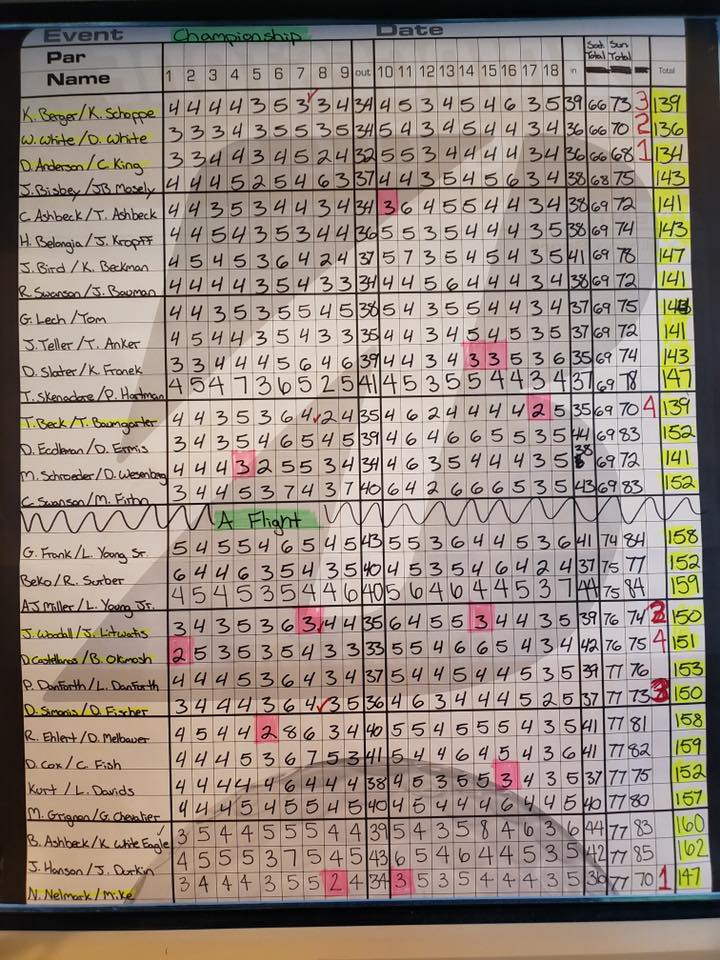 Event Championship Date
Par Sat Total Sun Total
Name 1 2 3 4 5 6 7 8 9 out 10 11 12 13 14 15 16 17 18 in Total
K. Berger/K. Schoppe 4 4 4 4 3 5 3 3 4 34 4 5 3 4 5 4 6 3 5 39 66 73 3 139
W. White/D. White 3 3 3 4 3 5 5 3 5 34 5 4 3 4 5 4 4 3 4 36 66 70 2 136
D. Anderson/C. King 3 3 4 4 3 4 5 2 4 32 5 5 3 4 4 4 4 3 4 36 66 68 1 134
J. Bisbey/JB Mosely 4 4 4 5 2 5 4 6 3 37 4 4 3 5 4 5 6 3 4 38 68 75 143
C. Ashbeck/T. Ashbeck 4 4 3 5 3 4 4 3 4 34 3 6 4 5 5 4 4 3 4 38 69 72 141
H. Belongia/J. Kropff 4 4 5 4 3 5 3 4 4 36 5 5 3 5 4 4 4 3 5 38 69 74 143
J. Bird/K. Beckman 4 5 4 5 3 6 4 2 4 37 5 7 3 5 4 5 4 3 5 41 69 78 147
R. Swanson/J. Bauman 4 4 4 4 3 5 4 3 3 34 4 4 5 6 4 4 4 3 4 38 69 72 141
G. Lech/Tom 4 4 3 5 3 5 5 4 5 38 5 4 3 5 5 4 4 3 4 37 69 75
J. Teller/T. Anker 4 5 4 4 3 5 4 3 3 35 4 4 3 4 5 4 5 3 5 37 69 72 141
D. Slater/K. Franek 3 3 4 4 4 5 6 4 6 39 4 4 3 4 3 3 5 3 6 35 69 74 143
T. Skenadore/P. Hartman 4 5 4 7 3 6 5 2 5 41 4 5 3 5 5 4 4 3 4 37 69 78 147
T. Beck/T. Baumgarter 4 4 3 5 3 6 4 2 4 35 4 6 2 4 4 4 4 2 5 35 69 70 4 139
D. Eccleran/D. Ermis 3 4 3 5 4 6 5 4 5 39 4 6 4 6 6 5 5 3 5 44 69 83 152
M. Schroeder/D. Wesenberg 4 4 4 3 2 5 5 3 4 34 4 6 3 5 4 4 4 3 5 38 69 72 141
C. Swanson/M. Firth 3 4 4 5 3 7 4 3 7 40 6 4 2 6 6 6 5 3 5 43 69 83 152
A Flight
G. Frank/L. Young Sr. 5 4 5 5 4 6 5 4 5 43 5 5 3 6 4 4 5 3 6 41 74 84 158
Beko/R. Surber 6 4 4 6 3 5 4 3 5 40 4 5 3 5 4 6 4 2 4 37 75 77 152
AJ Miller/L. Young Jr. 4 5 4 5 3 5 4 4 6 40 5 6 4 6 4 4 5 3 7 44 75 84 159
J. Woodall/J. Litwaitis 3 4 3 5 3 6 3 4 4 35 6 4 5 5 3 4 4 3 5 39 76 74 150
D Castellanos/B. Okmosh 2 5 3 5 3 5 4 3 3 33 5 5 4 6 6 5 4 3 4 42 76 75 4 151
P. Danforth/L. Danforth 4 4 4 5 3 6 4 3 4 37 5 4 4 5 4 4 5 3 5 39 77 76 153
D. Simonis/D. Fischer 3 4 4 4 3 6 4 3 5 36 4 6 3 4 4 4 5 2 5 37 77 73 3 150
R. Ehlert/D. Melbauer 4 5 4 4 2 8 6 3 4 40 5 5 4 5 5 5 4 3 5 41 77 81 158
D. Cox/C. Fish 4 4 4 5 3 6 7 5 3 41 5 4 4 6 4 5 4 3 6 41 77 82 159
Kurt/L. Davids 4 4 4 4 4 6 4 4 4 38 4 5 3 5 5 3 4 3 5 37 77 75 152
M. Grignon/G. Chevalier 4 4 4 5 4 5 5 4 5 40 4 5 4 4 4 6 4 4 5 40 77 80 157
B. Ashbeck/K. White Eagle 3 5 4 4 5 5 5 4 4 39 5 4 3 5 8 4 6 3 6 44 77 83 160
J. Hanson/J. Durkin 4 5 5 5 3 7 5 4 5 43 6 5 4 6 4 4 5 3 5 42 77 85 162
N. Nelmark/Mike 3 4 4 4 3 5 5 2 4 34 3 5 3 5 4 4 4 3 5 36 77 70 1 147